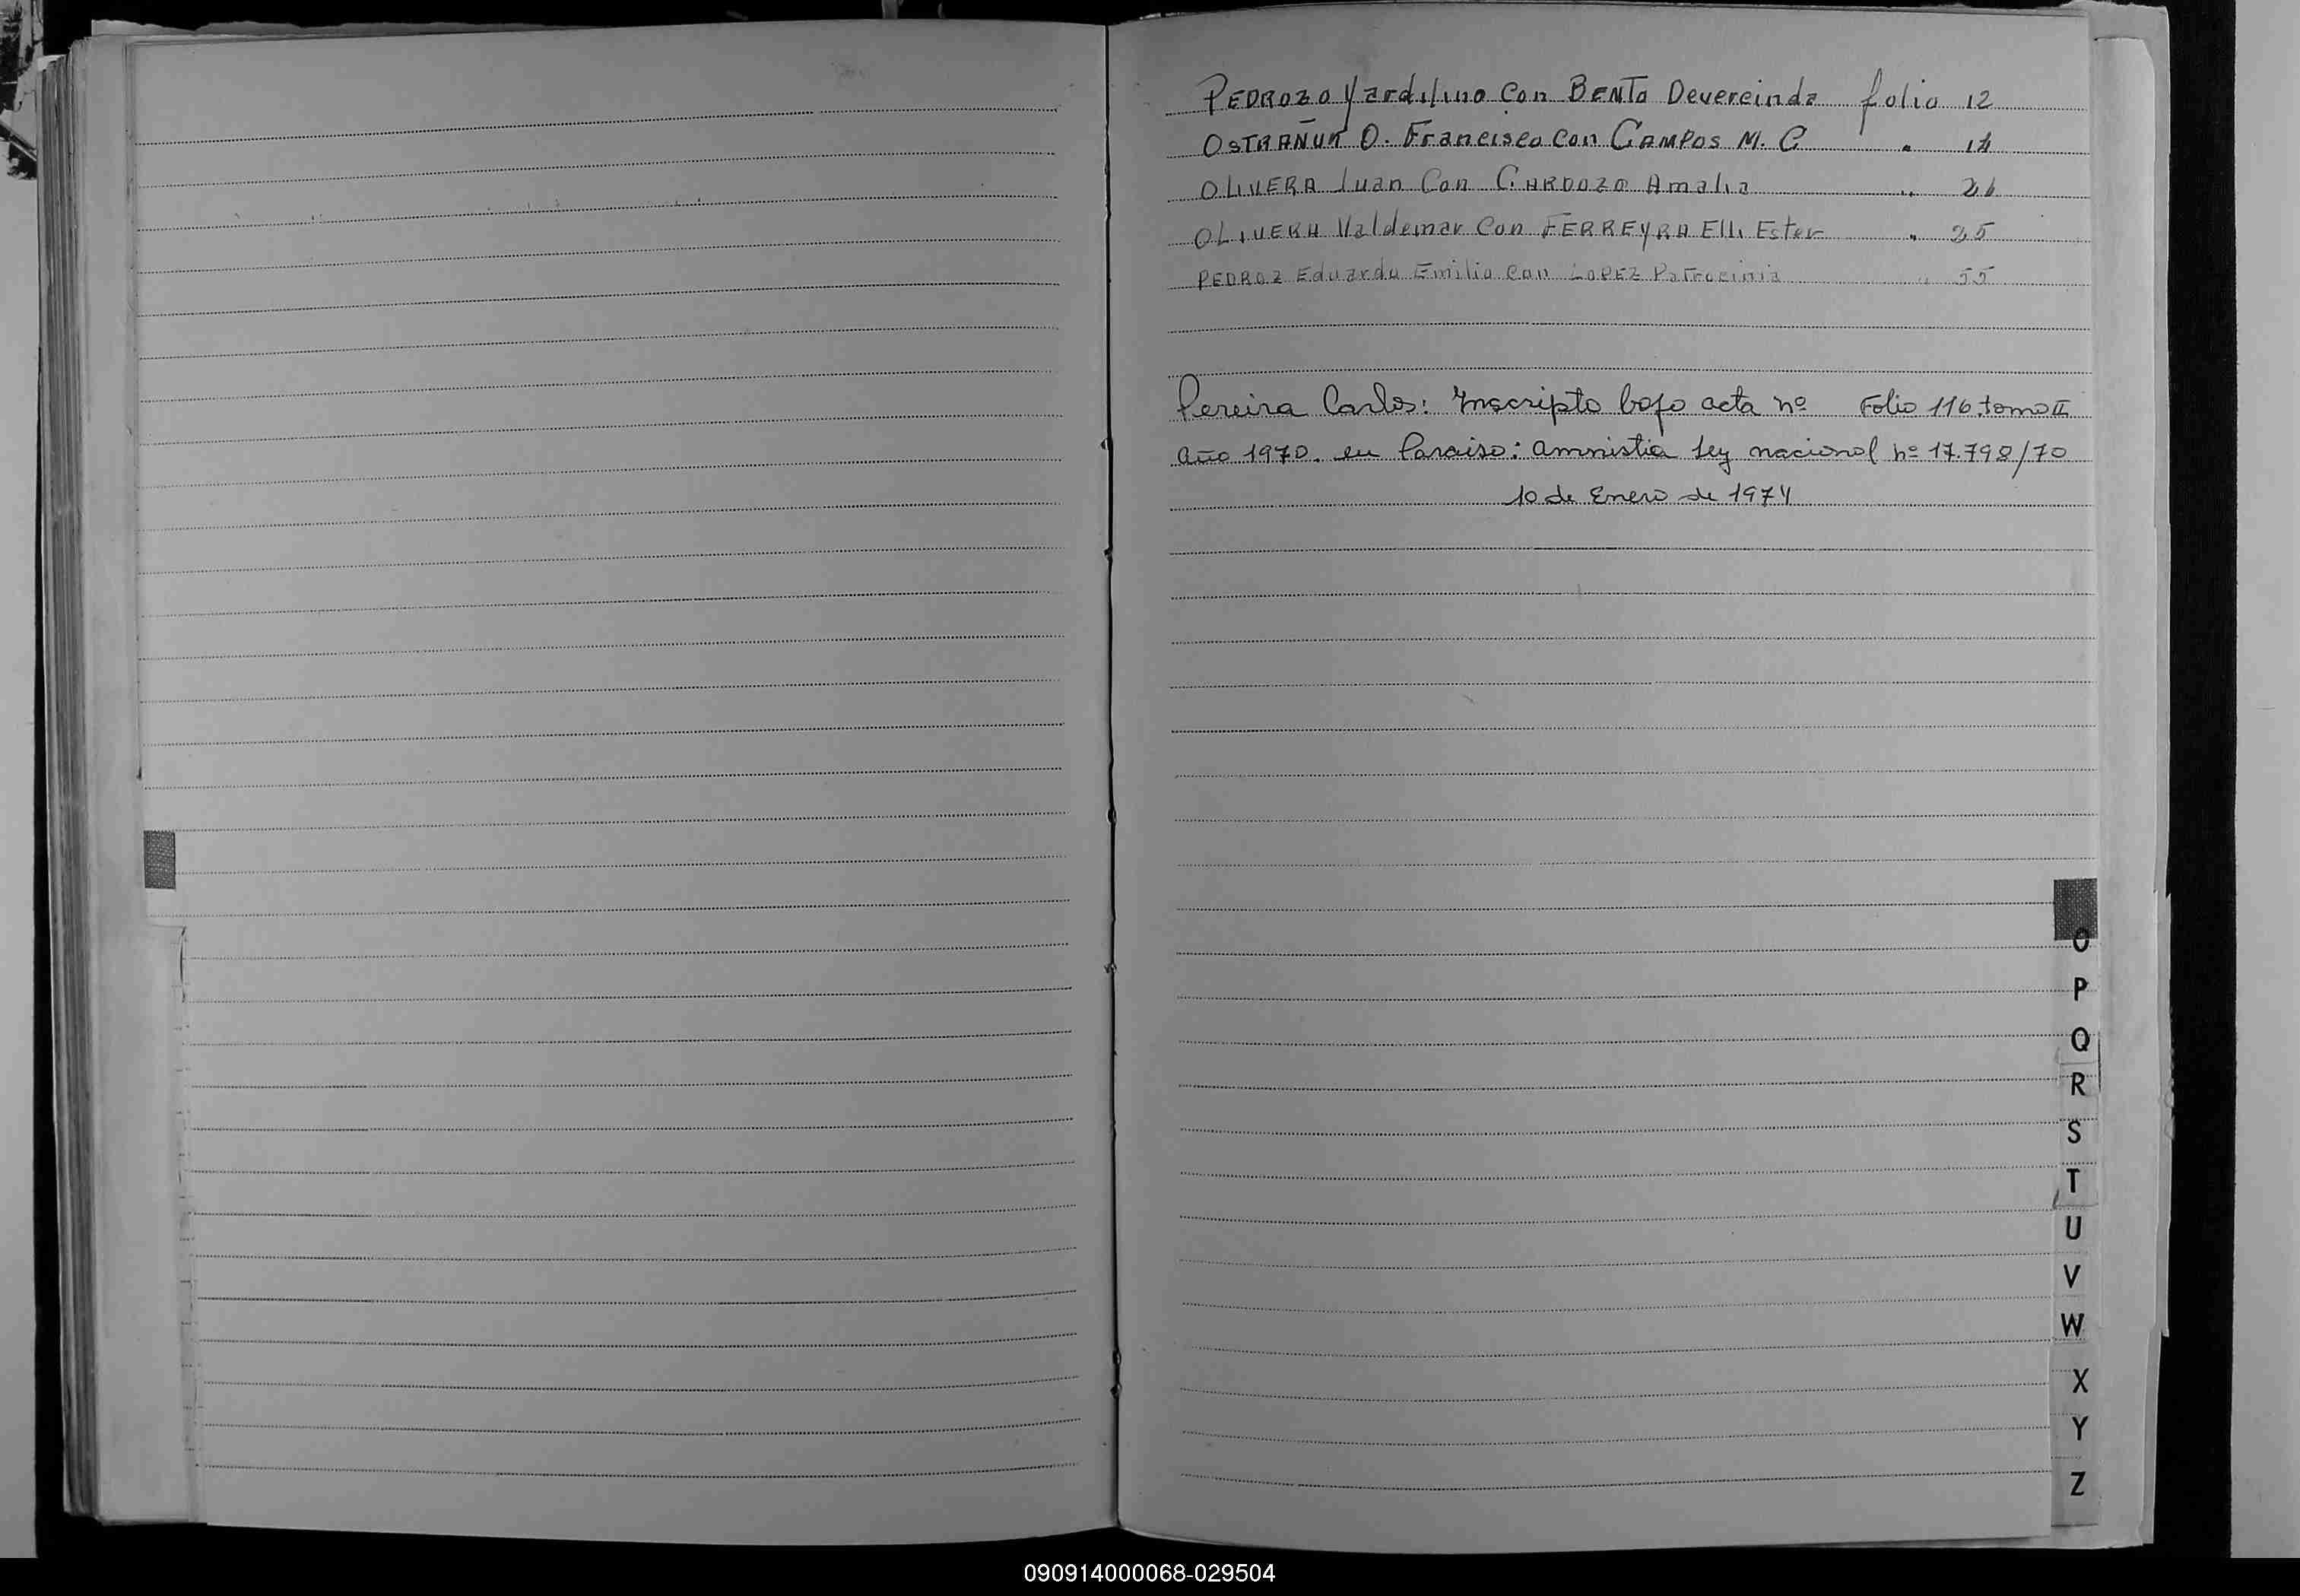 PEDROZO Yardilino Con BENTO Devereinda folio 12
OSTRAÑUK O. Francisco Con CAMPOS M. C " 14
OLIVERA Juan Con CARDOZO Amalia " 21
OLIVERA Valdemar Con FERREYRA Elli Ester " 25
PEDROZ Eduardo Emilio Con LOPEZ Patrocinia " 55
Pereira Carlos: Inscripto bajo acta nº Folio 116. tomo II
año 1970. en Paraiso: amnistia Ley nacional nº 17.798/70
10 de Enero de 1974
O
P
Q
R
S
T
U
V
W
X
Y
Z
090914000068-029504